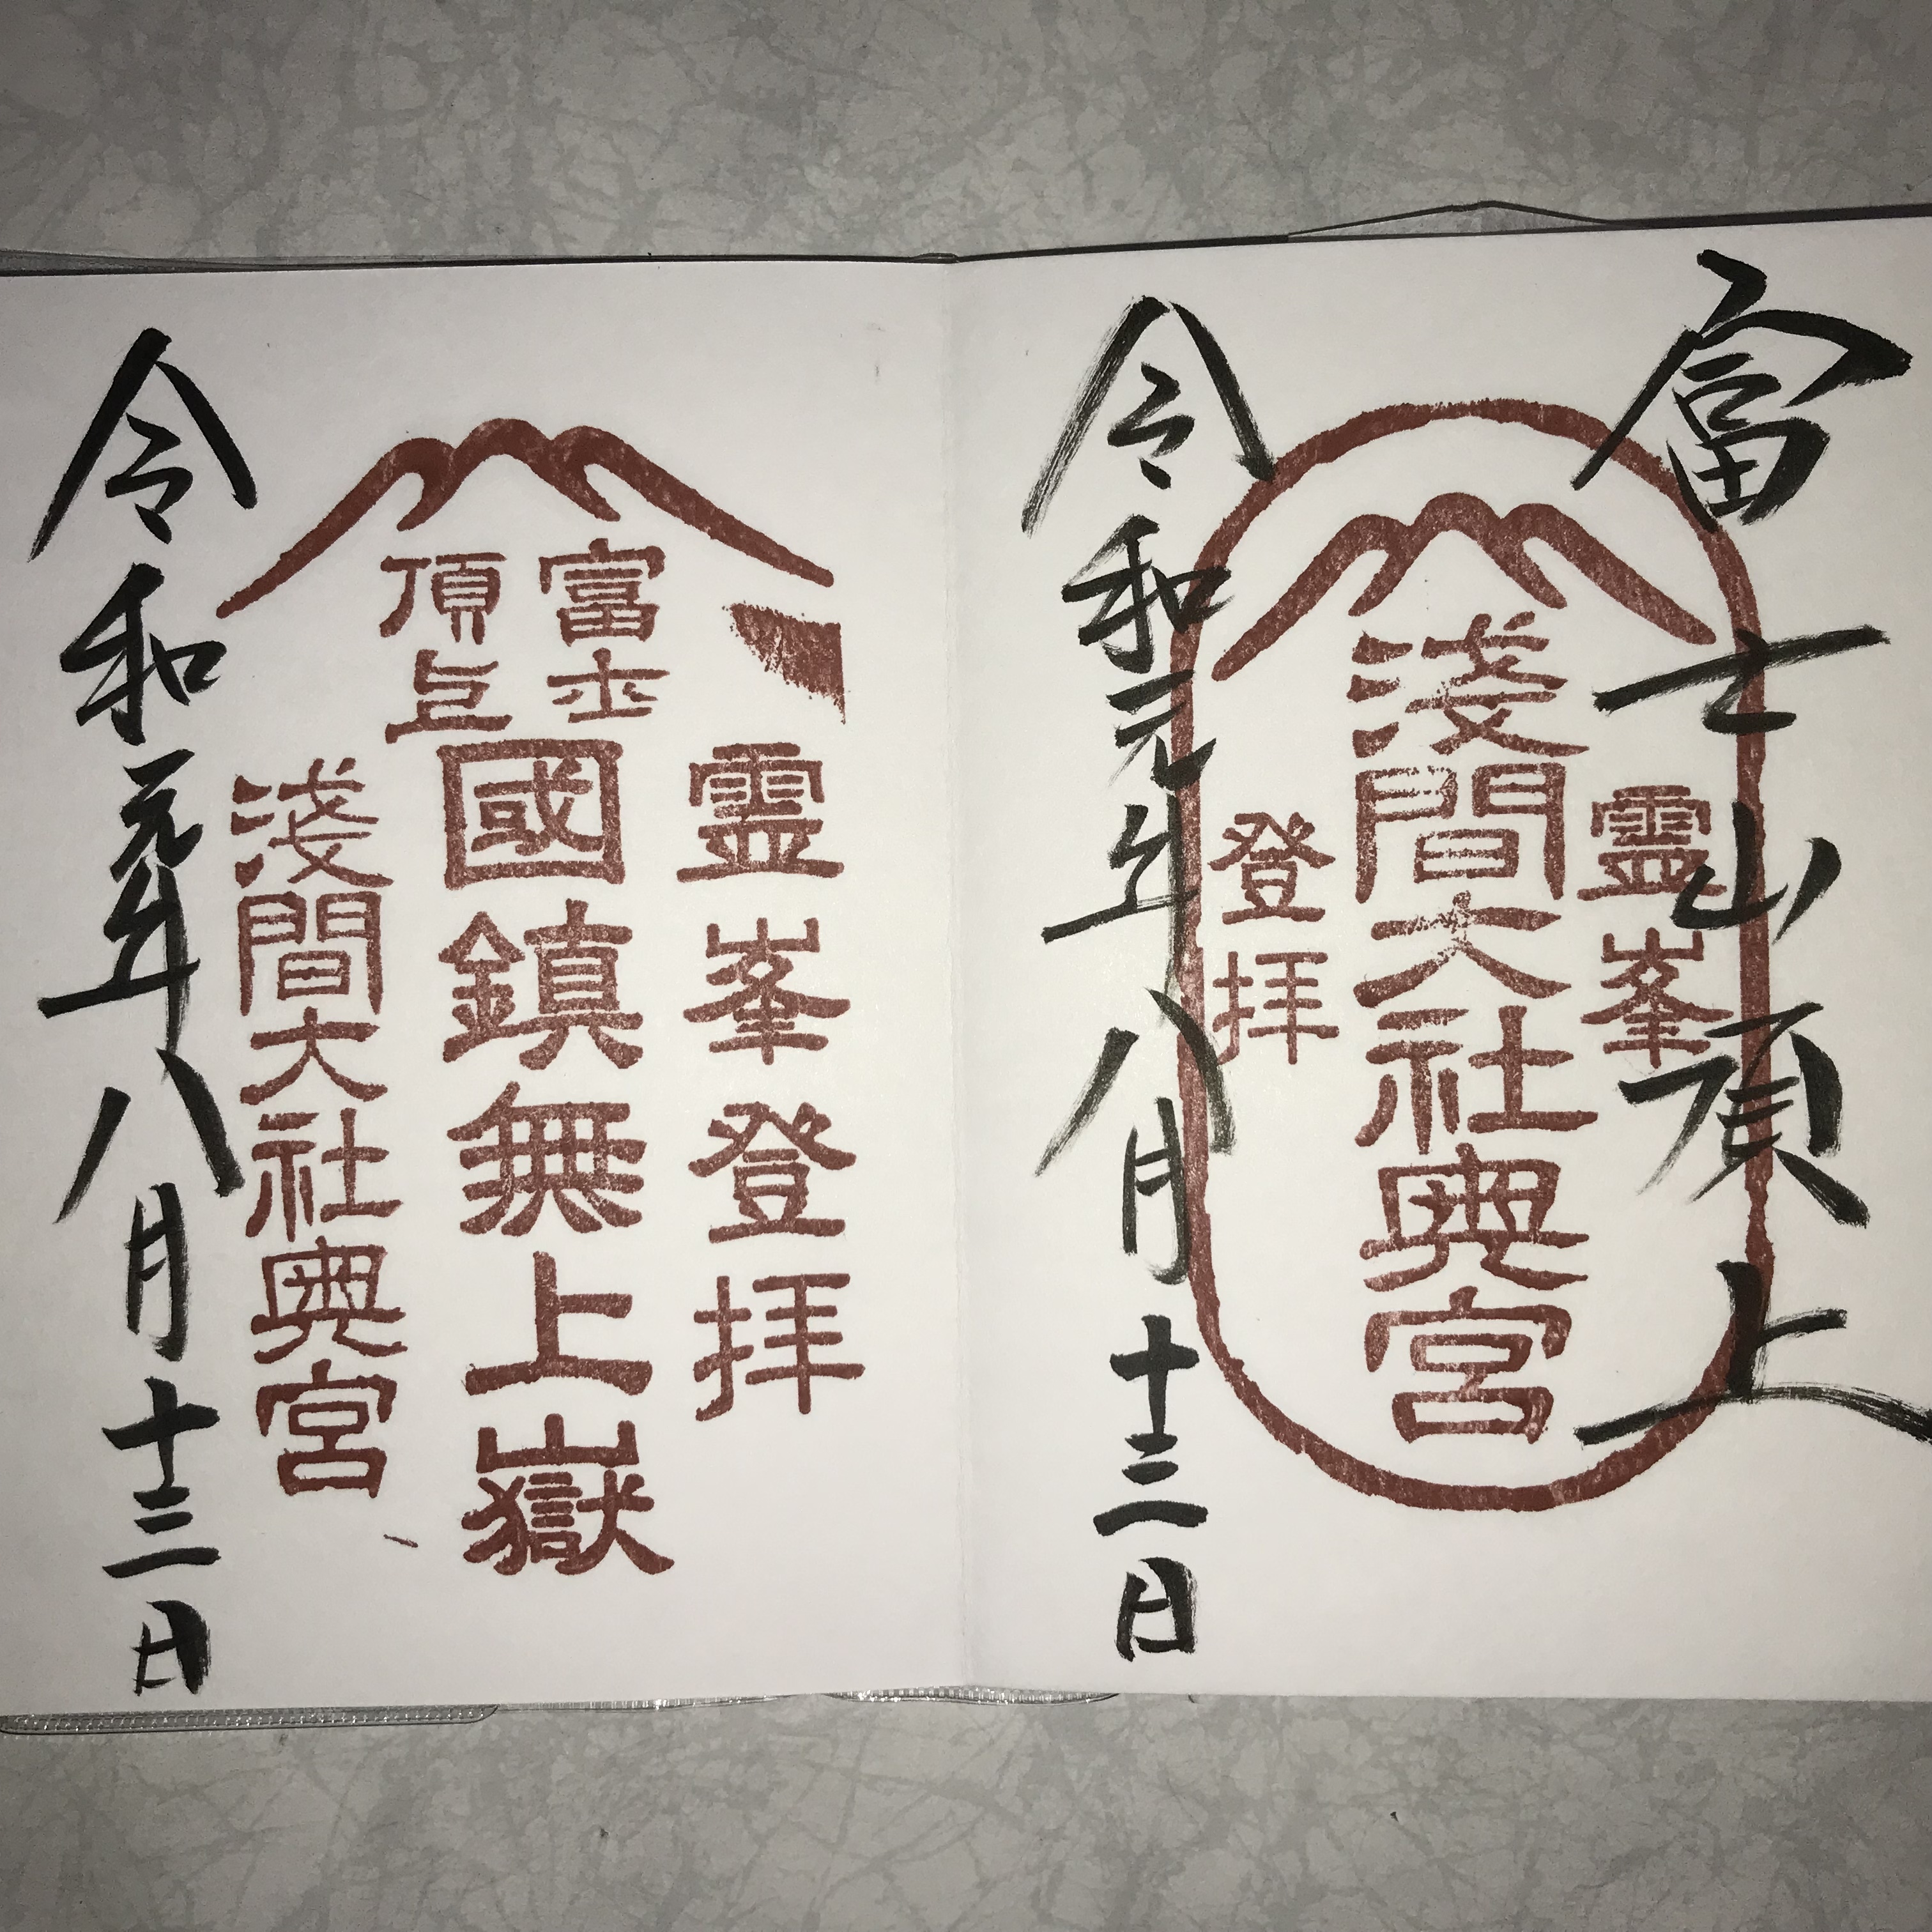 富士山頂上
霊峯
淺間大社奥宮
登拝
令和元年八月十三日
霊峯登拝
富士
頂上
國鎮無上嶽
淺間大社奥宮
令和元年八月十三日